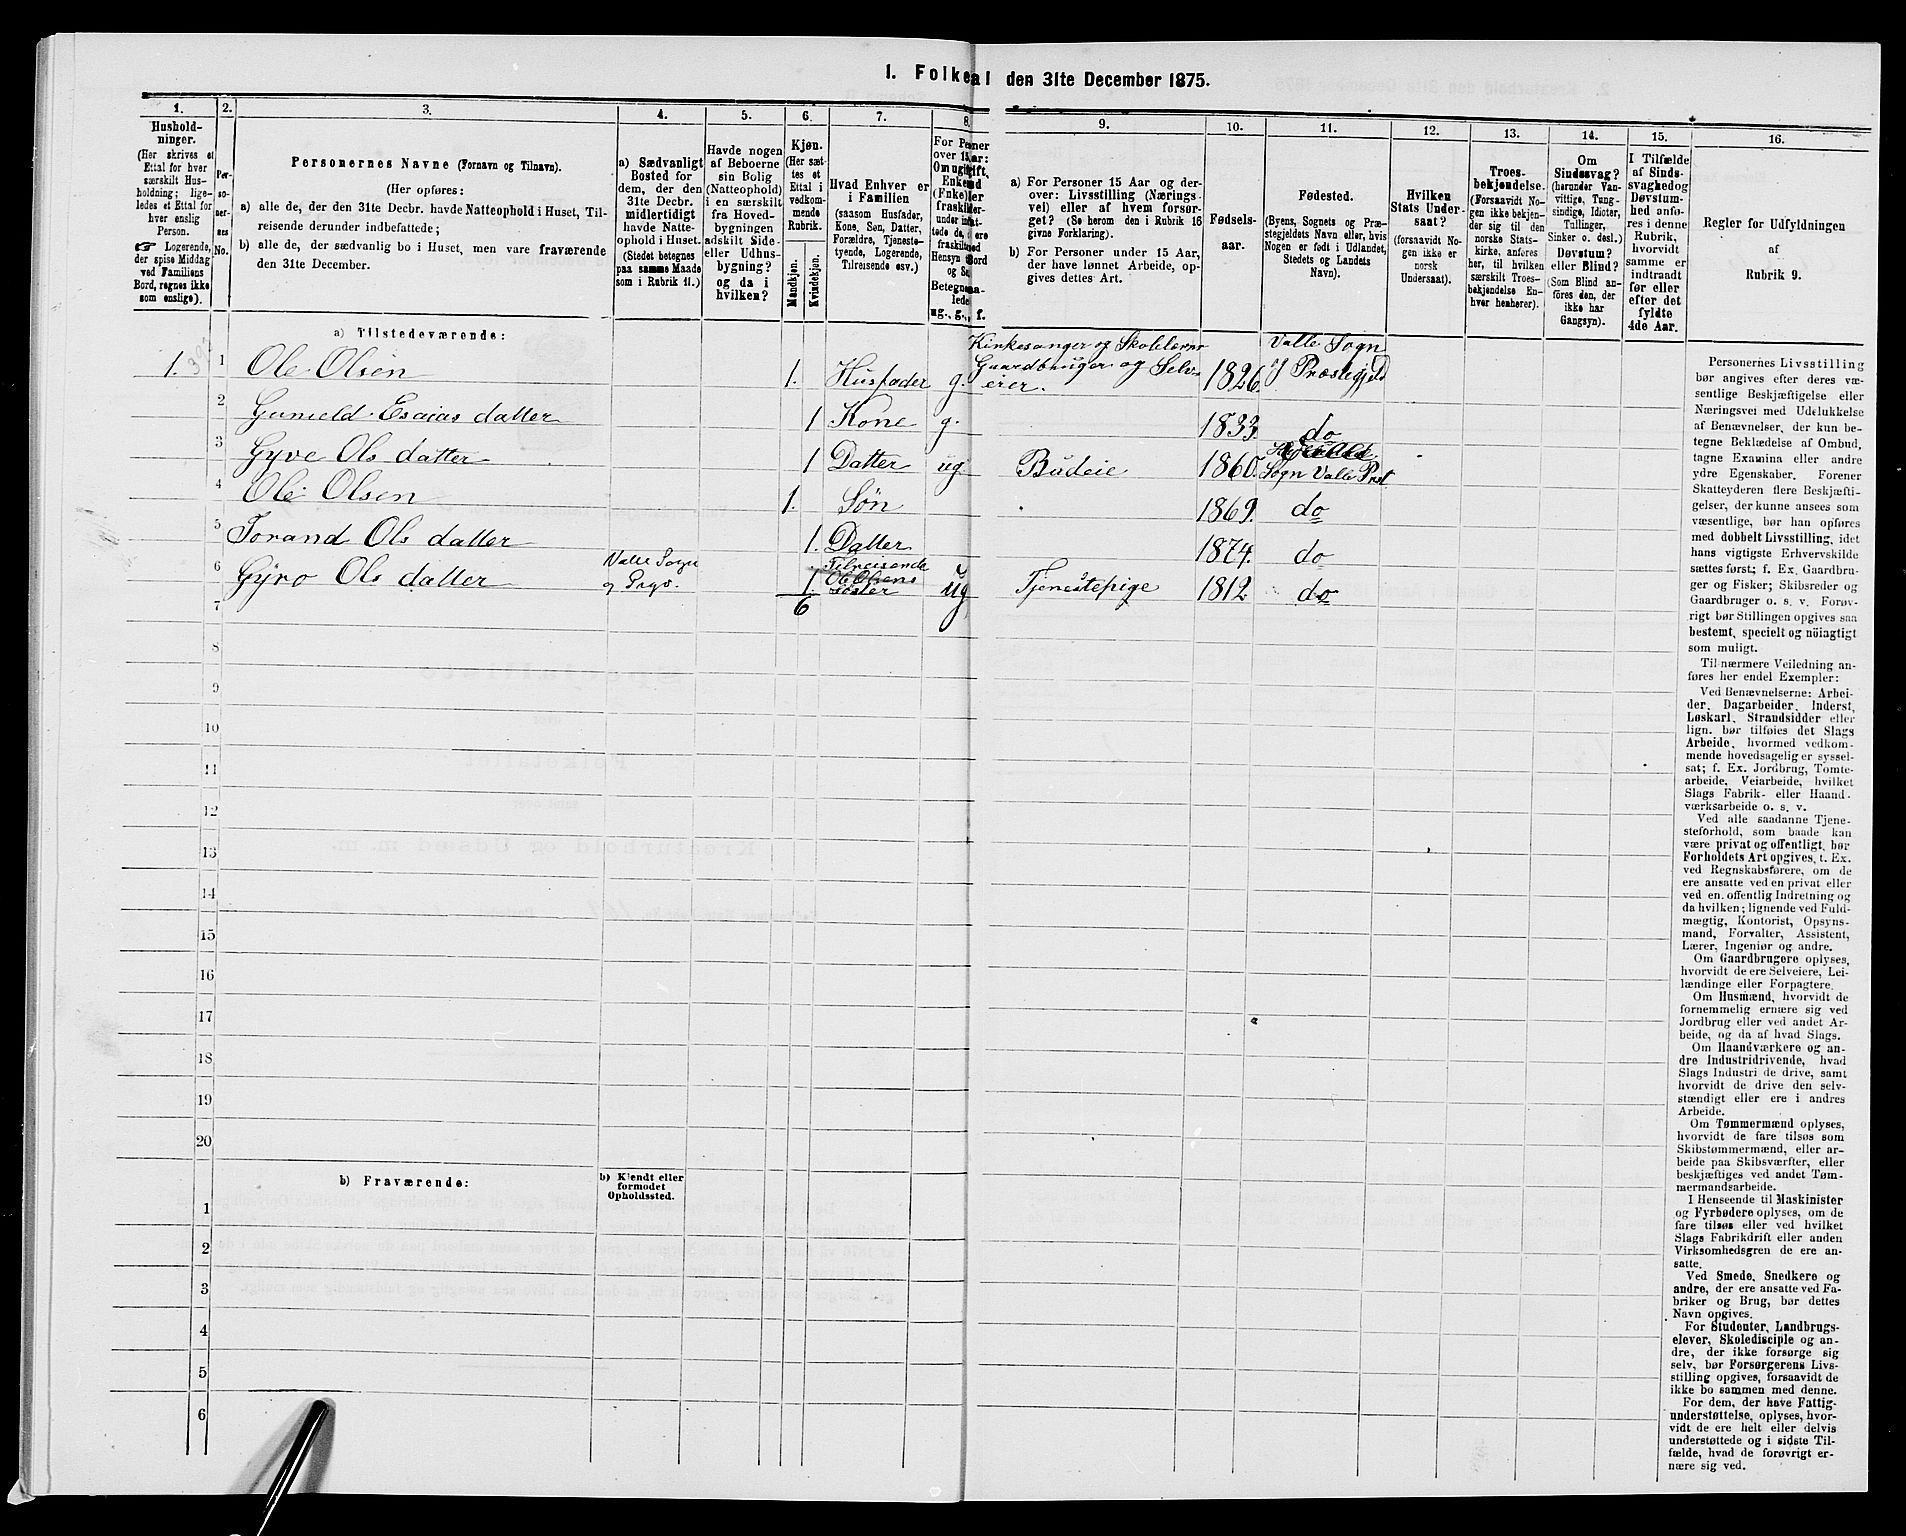 1. Folketal den 31te December 1875.
1.
2.
3.
4.
5.
6.
7.
8.
9.
10.
11.
12.
13.
14.
15.
16.
Hushold-
ninger.
(Her skrives et
Ettal for hver
særskilt Hus-
holdning; lige-
ledes et Ettal for
hver enslig
Person.
☞ Logerende,
der spise Middag
ved Familiens
Bord, regnes ikke
som enslige).
Per-
so-
ner-
nes
No.
Personernes Navne (Fornavn og Tilnavn).
(Her opføres:
a) alle de, der den 31te Decbr. havde Natteophold i Huset, Til-
reisende derunder indbefattede;
b) alle de, der sædvanlig bo i Huset, men vare fraværende
den 31te December.
a) Sædvanligt
Bosted for
dem, der den
31te Decbr.
midlertidigt
havde Natte-
ophold i Huset.
(Stedet betegnes
paa samme Maade
som i Rubrik 11.)
Havde nogen
af Beboerne
sin Bolig
(Natteophold)
i en særskilt
fra Hoved-
bygningen
adskilt Side-
eller Udhus-
bygning?
og da i
hvilken?
Kjøn.
(Her sæt-
tes et
Ettal i
vedkom-
mende
Rubrik.
Mandkjøn.
Kvindekjøn.
Hvad Enhver er
i Familien
(saasom Husfader,
Kone, Søn, Datter,
Forældre, Tjeneste-
tyende, Logerende,
Tilreisende osv.)
ug., g., f.
a) For Personer 15 Aar og der-
over: Livsstilling (Nærings-
vei) eller af hvem forsør-
get? (Se herom den i Rubrik 16
givne Forklaring).
b) For Personer under 15 Aar,
der have lønnet Arbeide, op-
gives dettes Art.
Fødsels-
aar.
Fødested.
(Byens, Sognets og Præ-
stegjeldets Navn eller, hvis
Nogen er født i Udlandet,
Stedets og Landets
Navn).
Hvilken
Stats Under-
saat?
(forsaavidt No-
gen ikke er
norsk
Undersaat).
Troes-
bekjendelse.
(Forsaavidt No-
gen ikke bekjen-
der sig til den
norske Stats-
kirke, anføres
her, til hvilken
særskilt Troes-
bekjendelse En-
hver henhører).
Om
Sindssvag?
(herunder Van-
vittige, Tung-
sindige, Idioter,
Tullinger,
Sinker o. desl.)
Døvstum?
eller Blind?
(Som Blind an-
føres den, der
ikke har
Gangsyn).
I Tilfælde
af Sinds-
svaghed og
Døvstum-
hed anfø-
res i denne
Rubrik,
hvorvidt
samme er
indtraadt
før eller
efter det
fyldte
4de Aar.
Regler for Udfyldningen
af
Rubrik 9.
a) Tilstedeværende:
1. 1 Ole Olsen 1. Husfader g. Kirkesanger og Skolelærer Gaardbruger og Selveier. 1826 Valle Sogn og Præstegjeld
2 Gunield Esaias datter 1 Kone g. 1833. do
3 Gyve Ols datter 1 Datter ug Budeie 1860. Sogn Valle Prst
4 Ole Olsen 1. Søn 1869. do
5 Torand Ols datter 1. Datter 1874. do
6 Gyro Ols datter Valle Sogn og Prgj. 1. Tilreisende Ole Olsens Søster ug Tjenestepige 1812 do
7 6
8
9
10
11
12
13
14
15
16
17
18
19
20
b) Fraværende:
b) Kjendt eller
formodet
Opholdssted.
1
2
3
4
5
6
Personernes Livsstilling
bør angives efter deres væ-
sentlige Beskjæftigelse eller
Næringsvei med Udelukkelse
af Benævnelser, der kun be-
tegne Beklædelse af Ombud,
tagne Examina eller andre
ydre Egenskaber. Forener
Skatteyderen flere Beskjæfti-
gelser, der kunne ansees som
væsentlige, bør han opføres
med dobbelt Livsstilling, idet
hans vigtigste Erhvervskilde
sættes først; f. Ex. Gaardbru-
ger og Fisker; Skibsreder og
Gaardbruger o. s. v. Forøv-
rigt bør Stillingen opgives saa
bestemt, specielt og nöiagtigt
som muligt.
Til nærmere Veiledning an-
føres her endel Exempler:
Ved Benævnelserne: Arbei-
der, Dagarbeider, Inderst,
Løskarl, Strandsidder eller
lign. bør tilføies det Slags
Arbeide, hvormed vedkom-
mende hovedsagelig er syssel-
sat; f. Ex. Jordbrug, Tomte-
arbeide, Veiarbeide, hvilket
Slags Fabrik- eller Haand-
værksarbeide o. s. v.
Ved alle saadanne Tjene-
steforhold, som baade kan
være privat og offentligt, bør
Forholdets Art opgives, t. Ex.
ved Regnskabsførere, om de
ere ansatte ved en privat eller
ved en offentlig Indretning og
da hvilken; lignende ved Fuld-
mægtig, Kontorist, Opsyns-
mand, Forvalter, Assistent,
Lærer, Ingeniør og andre.
Om Gaardbrugere oplyses,
hvorvidt de ere Selveiere, Lei-
lændinge eller Forpagtere.
Om Husmænd, hvorvidt de
fornemmelig ernære sig ved
Jordbrug eller ved andet Ar-
beide, og da af hvad Slags.
Om Haandværkere og an-
dre Industridrivende, hvad
Slags Industri de drive, samt
hvorvidt de drive den selv-
stændigt eller ere i andres
Arbeide.
Om Tømmermænd oplyses,
hvorvidt de fare tilsøs som
Skibstømmermænd, eller ar-
beide paa Skibsværfter, eller
beskjæftiges ved andet Tøm-
mermandsarbeide.
I Henseende til Maskinister
og Fyrbødere oplyses, om de
fare tilsøs eller ved hvilket
Slags Fabrikdrift eller anden
Virksomhedsgren de ere an-
satte.
Ved Smede, Snedkere og
andre, der ere ansatte ved Fa-
briker og Brug, bør dettes
Navn opgives.
For Studenter, Landbrugs-
elever, Skoledisciple og an-
dre, der ikke forsørge sig
selv, bør Forsørgerens Livs-
stilling opgives, forsaavidt de
ikke bo sammen med denne.
For dem, der have Fattig-
understøttelse, oplyses, hvor-
vidt de ere helt eller delvis
understøttede og i sidste Til-
fælde, hvad de forøvrigt er-
nære sig ved.